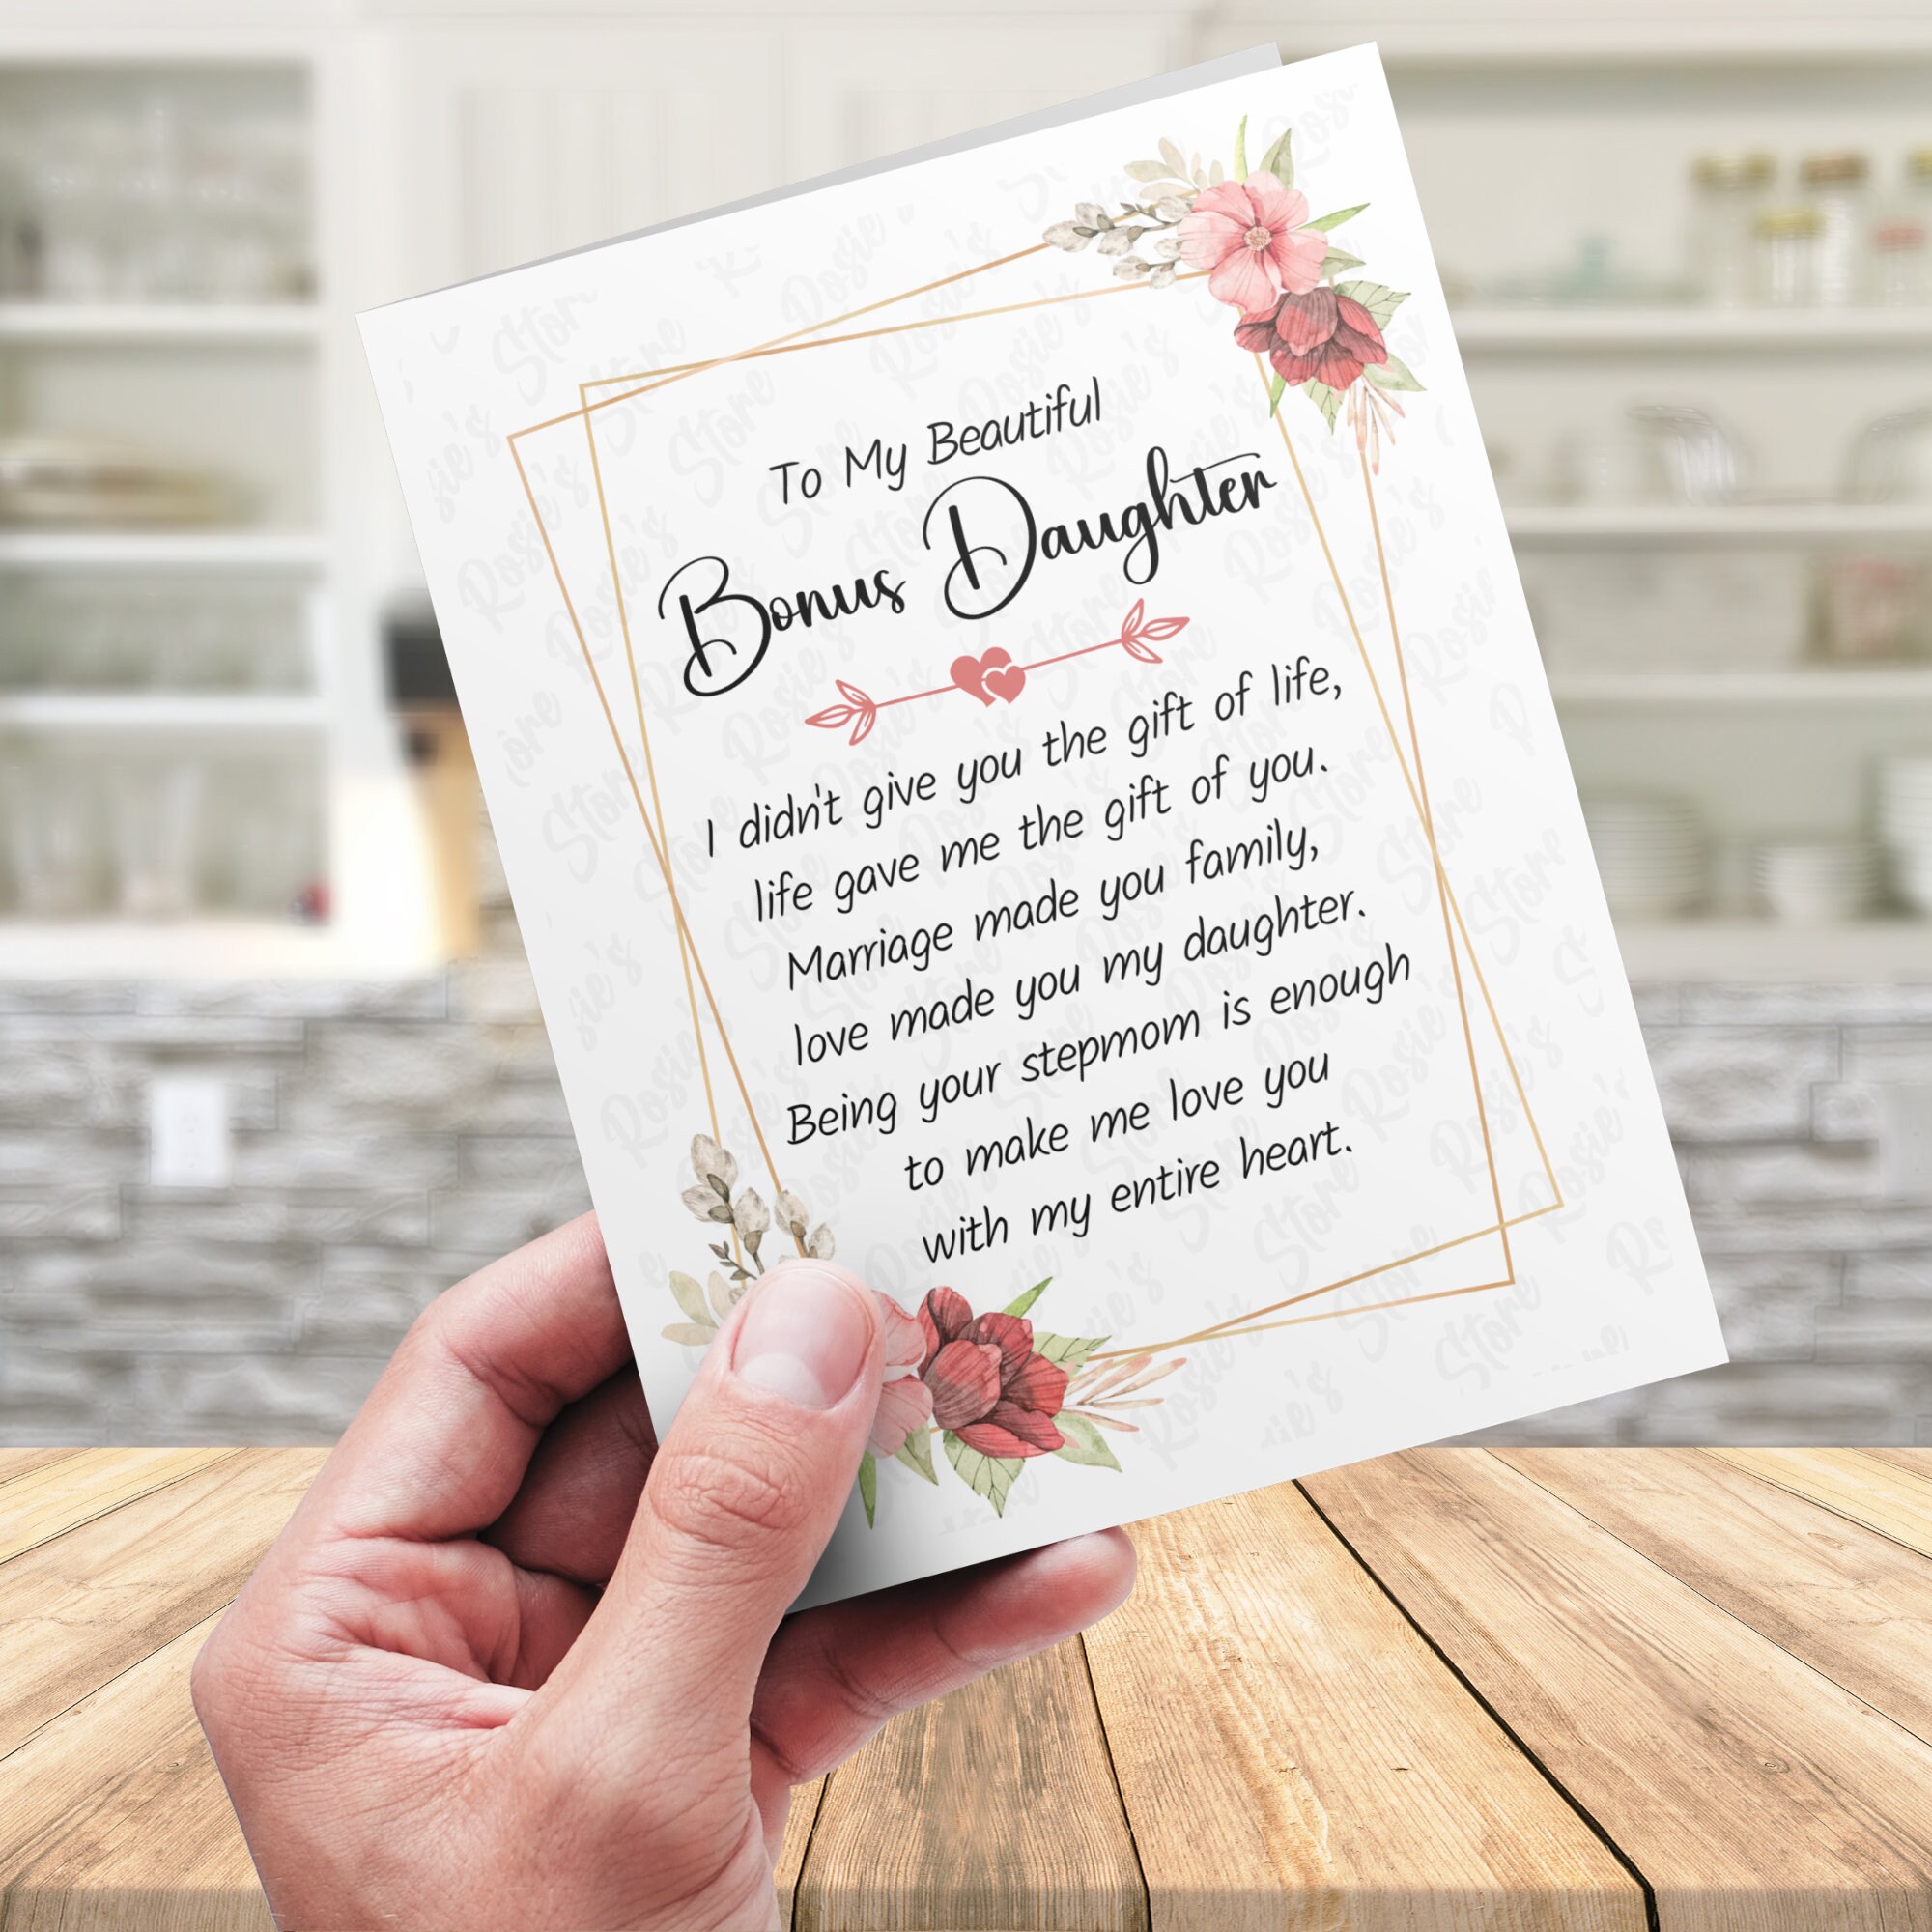 To My Beautiful
Bonus Daughter
I didn't give you the gift of life,
life gave me the gift of you.
Marriage made you family,
love made you my daughter.
Being your stepmom is enough
to make me love you
with my entire heart.
Rosie's Store